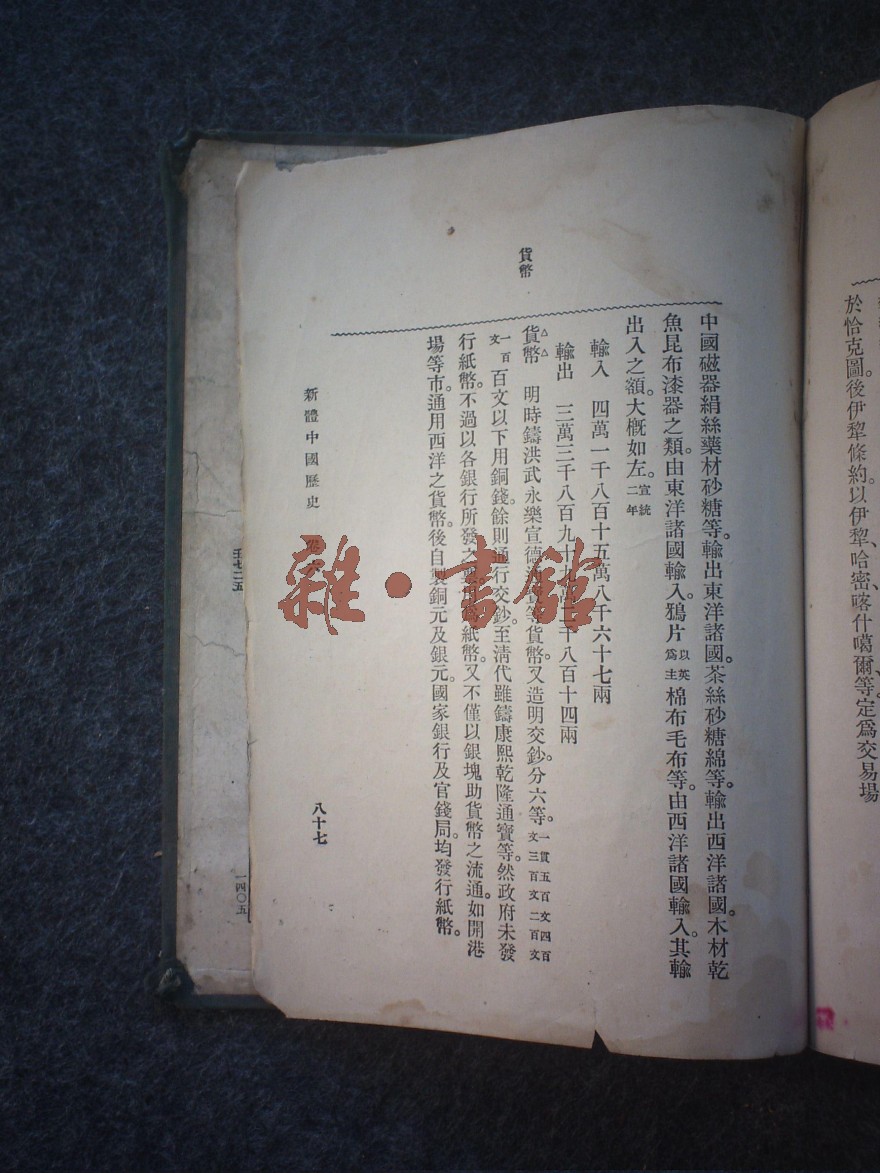 於恰克圖。後伊犂條約。以伊犂、哈密、喀什噶爾等。定爲交易場
貨幣
中國磁器絹絲藥材砂糖等。輸出東洋諸國。茶絲砂糖綿等。輸出西洋諸國。木材乾
魚昆布漆器之類。由東洋諸國輸入。鴉片以英爲主棉布毛布等。由西洋諸國輸入。其輸
出入之額。大概如左。宣統二年
輸入 四萬一千八百十五萬八千六十七兩
輸出 三萬三千八百九十 八百十四兩
貨幣 明時鑄洪武永樂宣德 等貨幣。又造明交鈔。分六等。一貫五百文四百文三百文二百文
一百文百文以下用銅錢。餘則通行交鈔。至清代雖鑄康熙乾隆通寶等。然政府未發
行紙幣。不過以各銀行所發之 紙幣。又不僅以銀塊助貨幣之流通。如開港
場等市。通用西洋之貨幣。後自製銅元及銀元。國家銀行及官錢局。均發行紙幣。
新體中國歷史 卷六
八十七
雜·書館
一四〇五